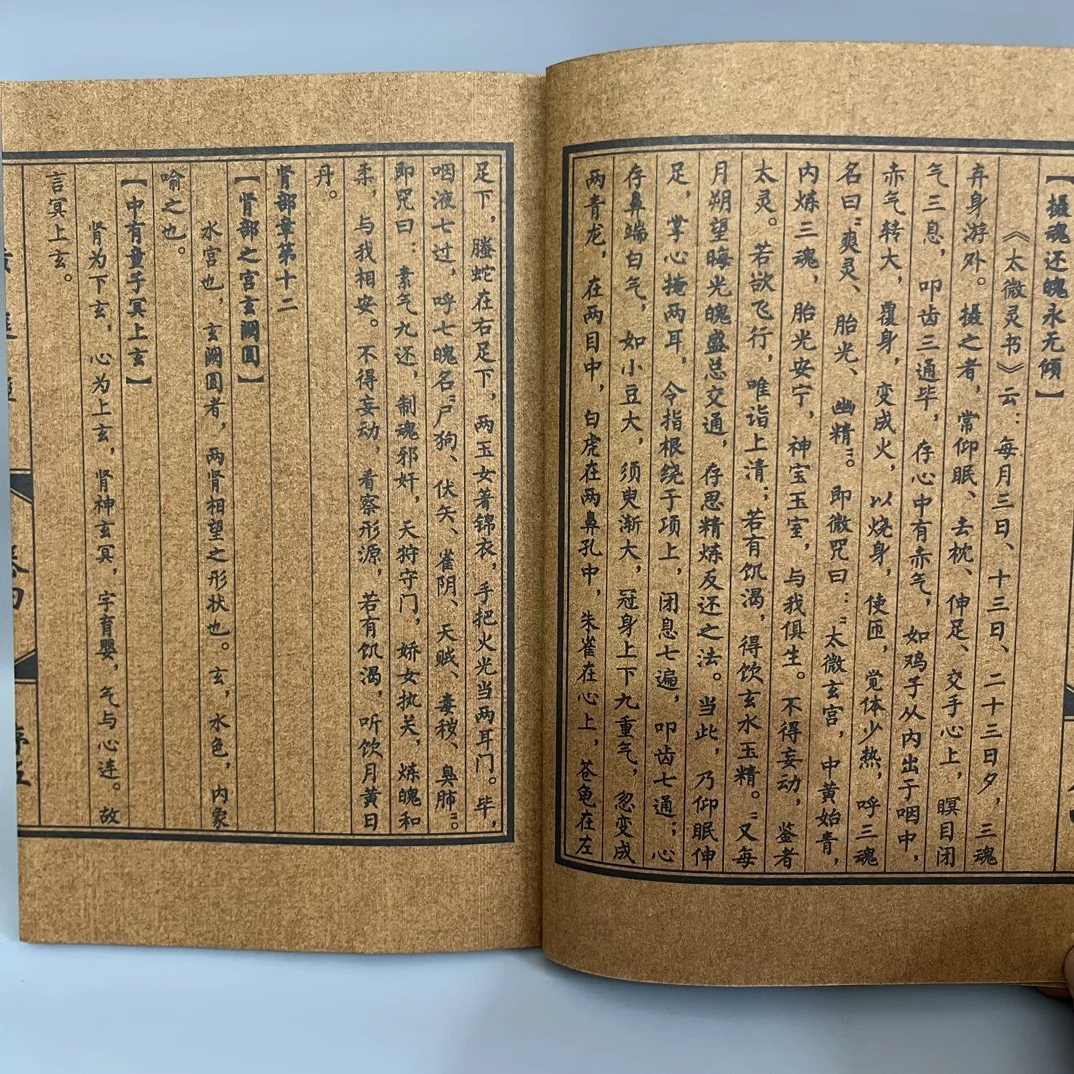 【摄魂还魄永无倾】
《太微灵书》云：每月三日、十三日、二十三日夕，三魂
弃身游外。摄之者，常仰眠、去枕、伸足、交手心上，瞑目闭
气三息，叩齿三通毕，存心中有赤气，如鸡子从内出于咽中，
赤气转大，覆身，变成火，以烧身，使匝，觉体少热，呼三魂
名曰“爽灵、胎光、幽精”。即微咒曰：“太微玄宫，中黄始青，
内炼三魂，胎光安宁，神宝玉室，与我俱生。不得妄动，鉴者
太灵。若欲飞行，唯诣上清；若有饥渴，得饮玄水玉精。”又每
月朔望晦光魄盛总交通，存思精炼反还之法。当此，乃仰眠伸
足，掌心掩两耳，令指根绕于项上，闭息七遍，叩齿七通；心
存鼻端白气，如小豆大，须臾渐大，冠身上下九重气，忽变成
两青龙，在两目中，白虎在两鼻孔中，朱雀在心上，苍龟在左
足下，螣蛇在右足下，两玉女著锦衣，手把火光当两耳门。毕，
咽液七过，呼七魄名“尸狗、伏矢、雀阴、天贼、毒秽、臭肺”。
即咒曰：素气九还，制魂邪奸，天狩守门，娇女执关，炼魄和
柔，与我相安。不得妄动，看察形源，若有饥渴，听饮月黄日
丹。
肾部章第十二
【肾部之宫玄阙圆】
水宫也，玄阙圆者，两肾相望之形状也。玄，水色，内象
喻之也。
【中有童子冥上玄】
肾为下玄，心为上玄，肾神玄冥，字育婴，气与心连。故
言冥上玄。